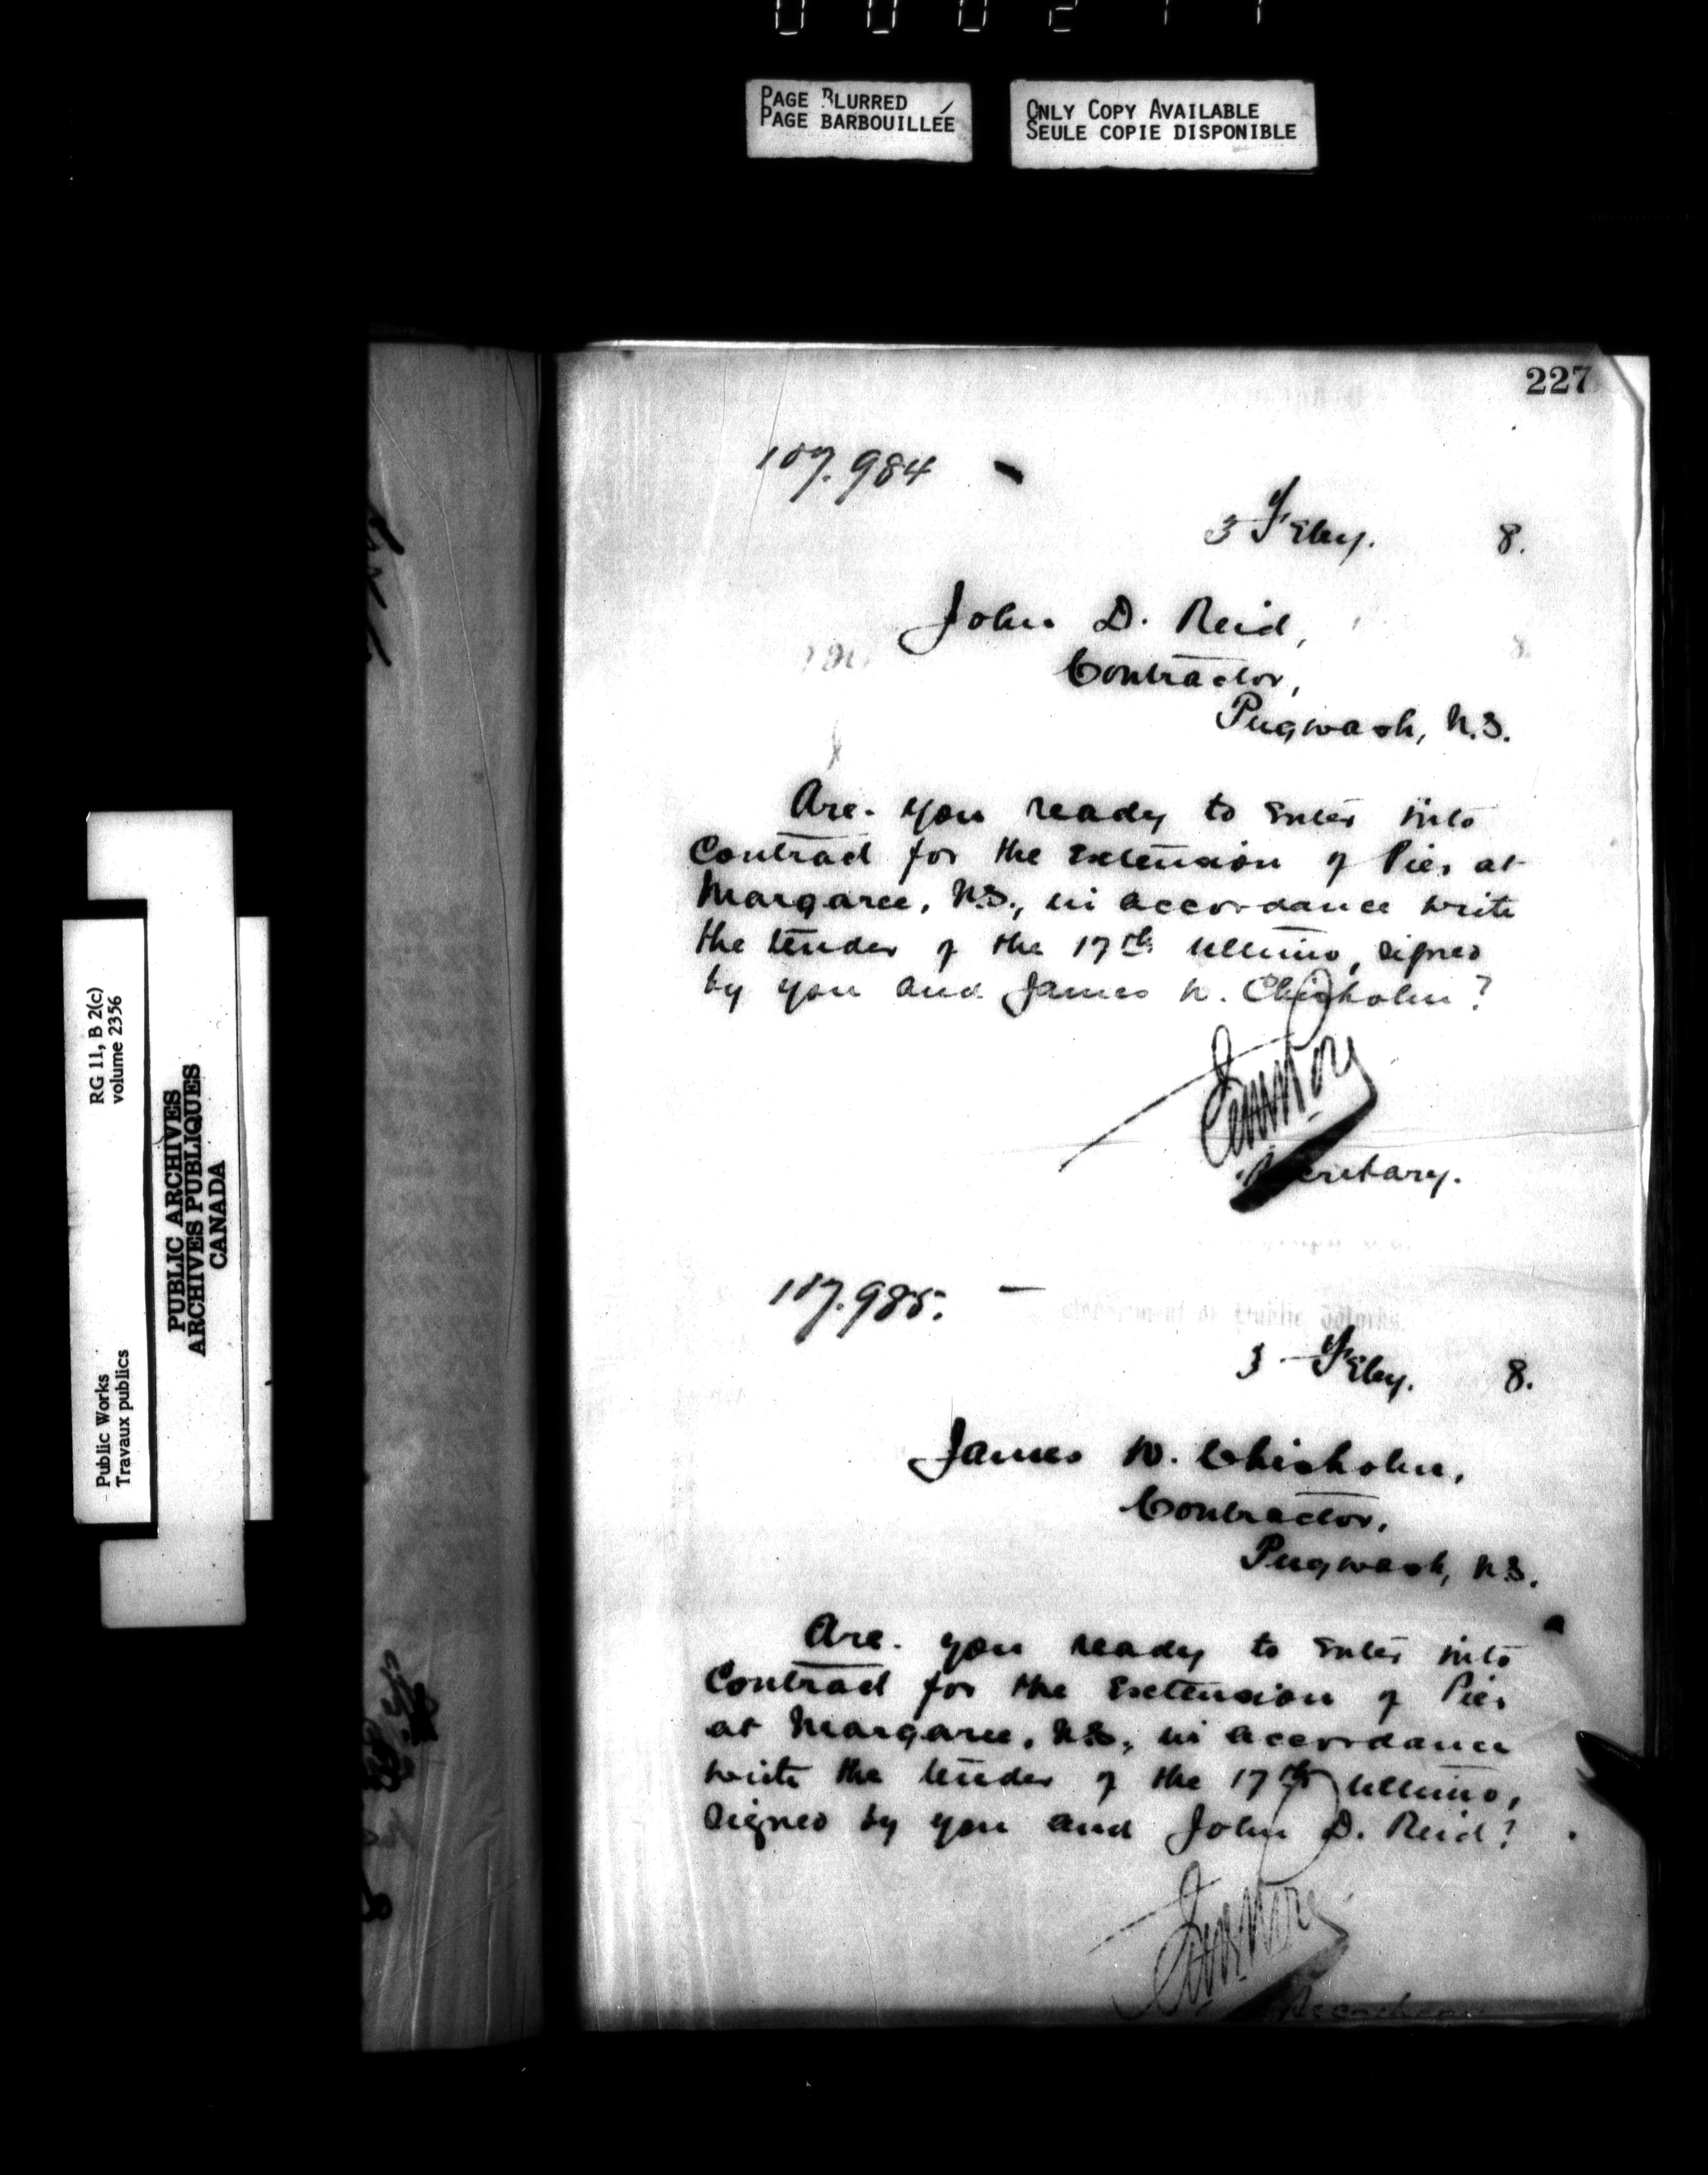 PAGE BLURRED
PAGE BARBOUILLÉE
ONLY COPY AVAILABLE
SEULE COPIE DISPONIBLE
RG 11, B 2(c)
volume 2356
Public Works
Travaux publics
PUBLIC ARCHIVES
ARCHIVES PUBLIQUES
CANADA
227
107.984
3 Feby. 8.
John D. Reid,
Contractor,
Pugwash, N.S.
Are you ready to enter into
Contract for the extension of Pier at
Margaree, N.S., in accordance with
the tender of the 17th ultimo, signed
by you and James W. Chisholm?
Secretary.
107.985.
Department of Public Works.
3 Feby. 8.
James W. Chisholm,
Contractor,
Pugwash, N.S.
Are you ready to enter into
Contract for the extension of Pier
at Margaree, N.S., in accordance
with the tender of the 17th ultimo,
signed by you and John D. Reid?